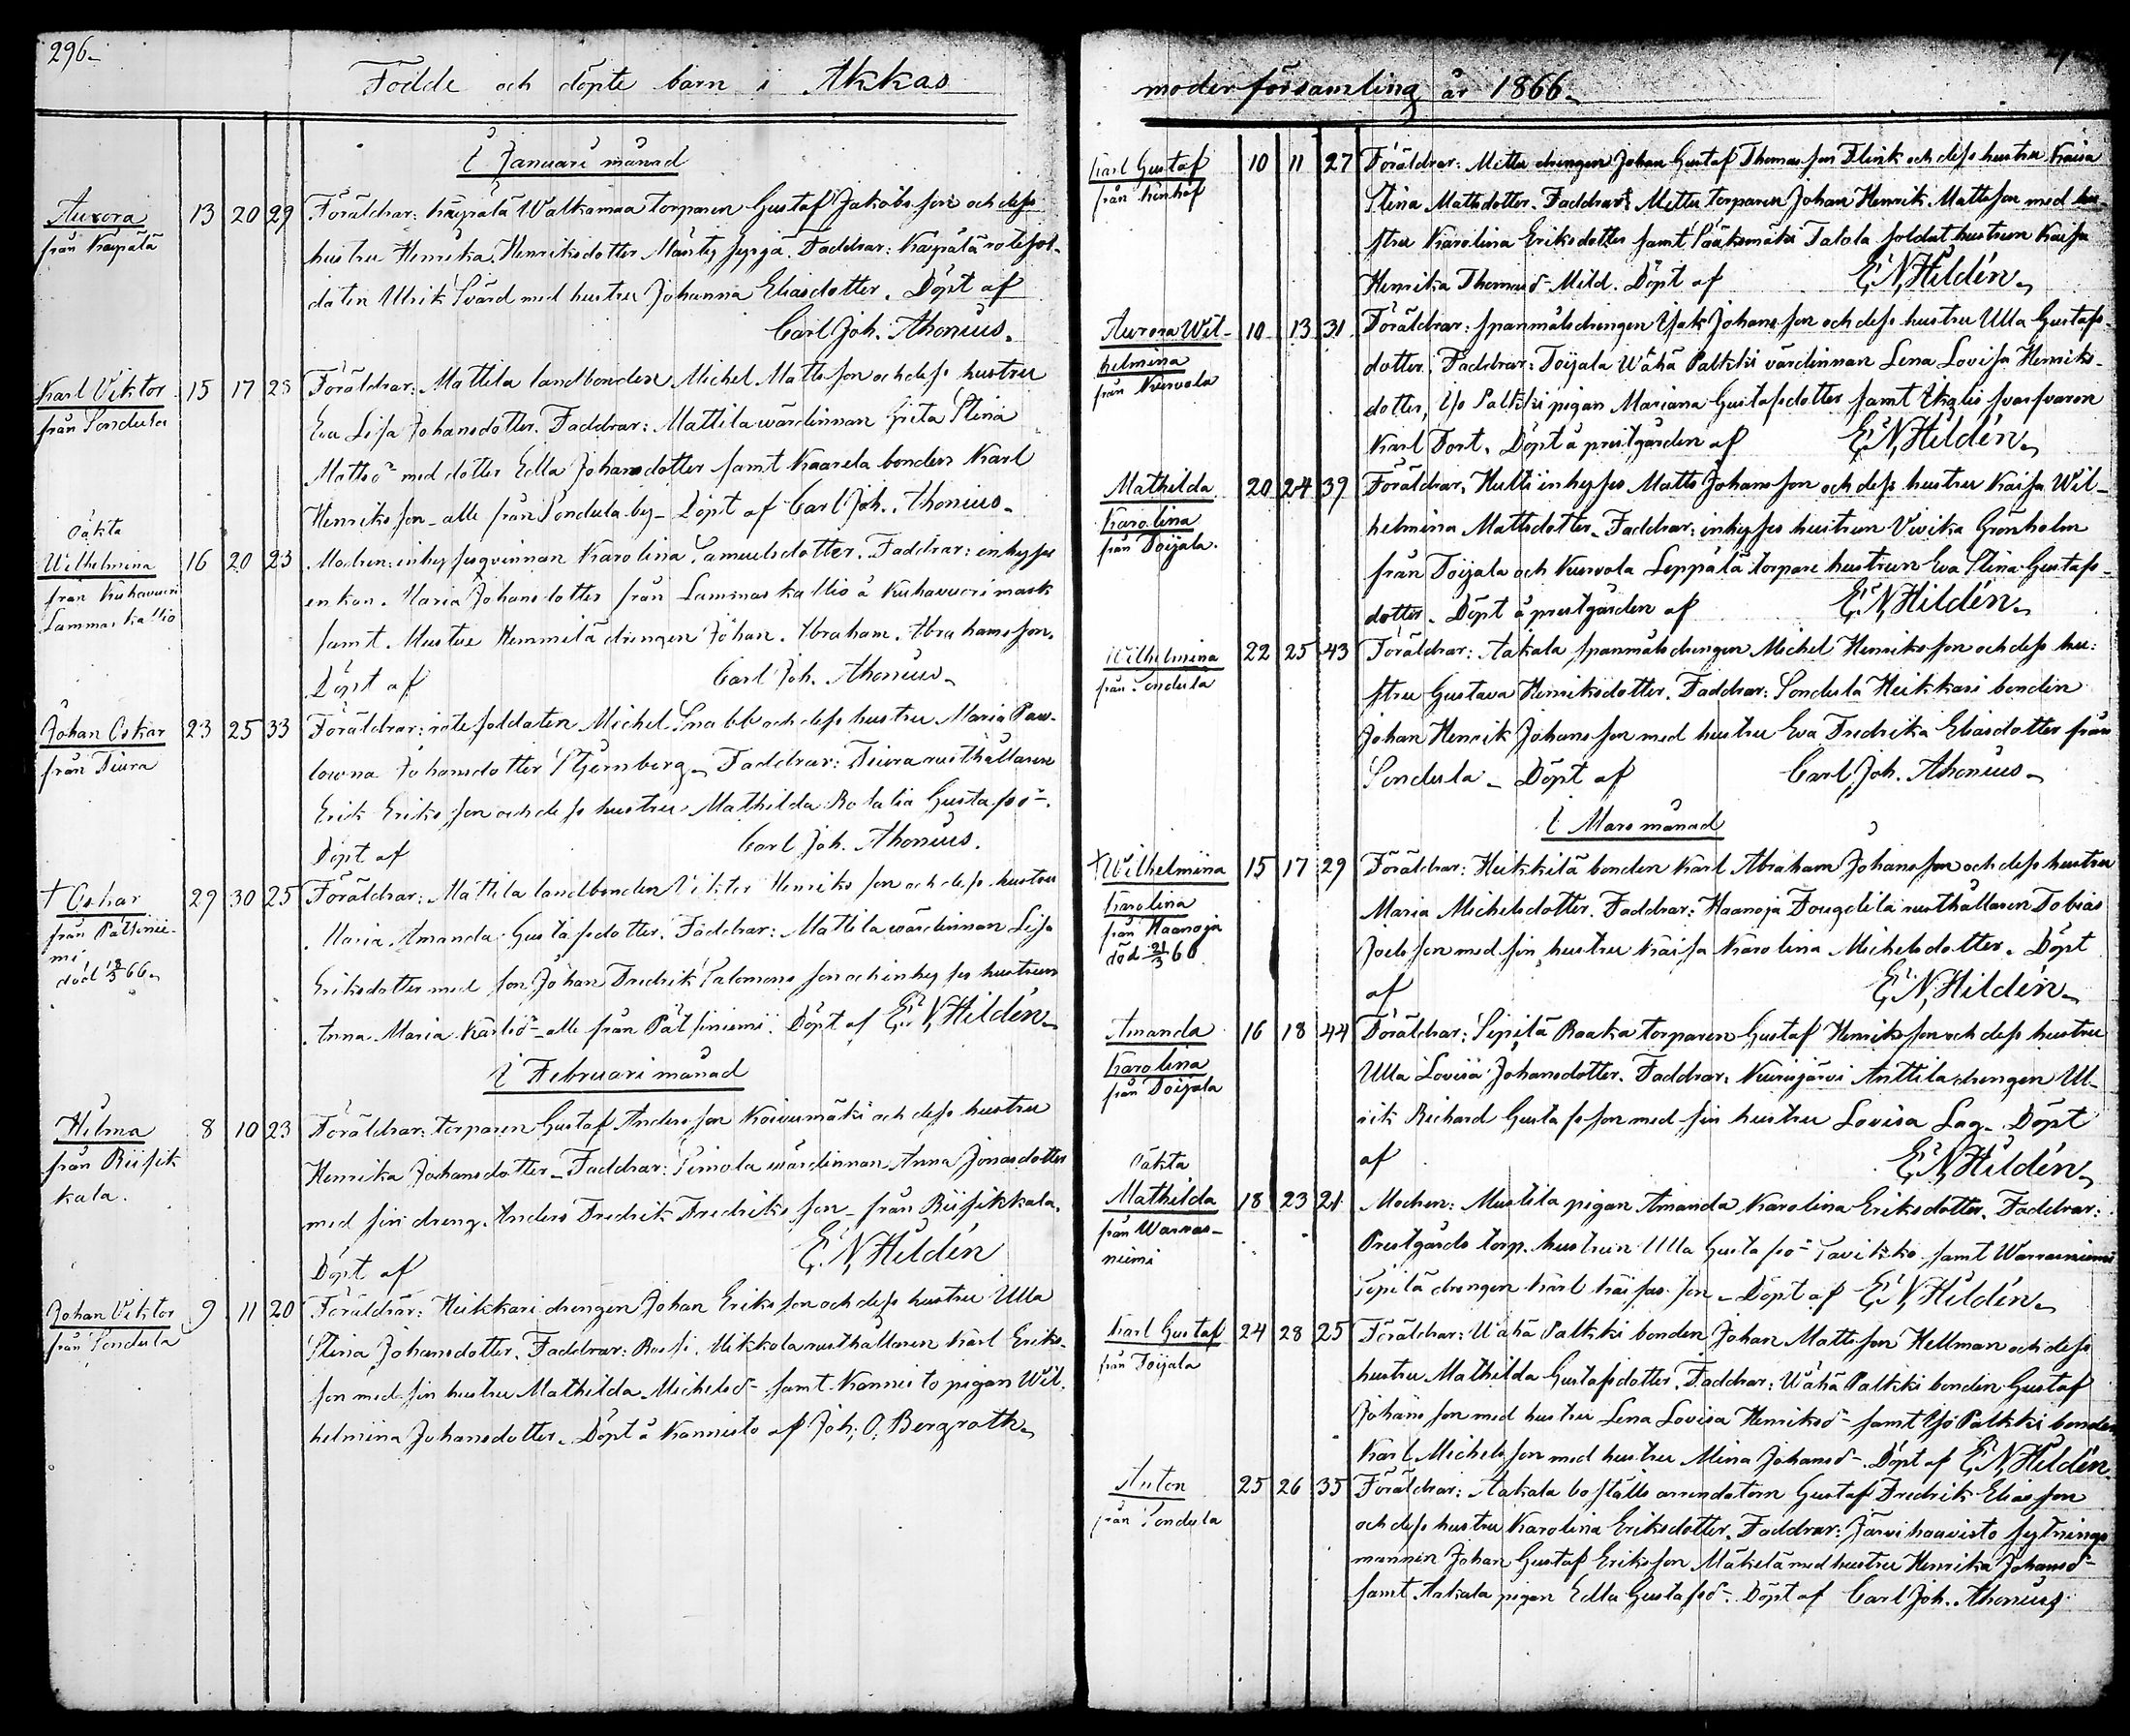 296.
Födde och döpte barn i Akkas
I Januari månad
Aurora 13 20 29 Föräldrar: Käypälä Walkamaa torparen Gustaf Jakobsson och dess
från Käypälä hustru Henrika Henriksdotter Mänty
Faddrar: Käypälä rotesol-
daten Ulrik Svärd med hustru Johanna Eliasdotter. Döpt af
Carl Joh. Ahonius.
Karl Viktor 15 17 23 Föräldrar: Mattila landbonden Michel Mattsson och dess hustru
från Sondula Eva Lisa Johansdotter. Faddrar: Mattila wärdinnan Greta Stina
Mattsd:r med dotter Edla Johansdotter samt Kaarela bonden Karl
Henriksson - alle från Sondula by - Döpt af Carl Joh. Ahonius.
Oäkta
Wilhelmina 16 20 23 Modren: inhysesqvinnan Karolina Samuelsdotter. Faddrar: inhyses
från Kuhavuori enkan Maria Johansdotter från Lammaskallio å Kuhavuori mark
Lammaskallio samt Hemmilä drengen Johan Abraham Abrahamsson.
Döpt af Carl Joh. Ahonius.
Johan Oskar 23 25 33 Föräldrar: rotesoldaten Michel Snabb och dess hustru Maria Paw-
från Tiura lowna Johansdotter Stjernberg. Faddrar: Tiura rusthållaren
Erik Eriksson och dess hustru Mathilda Rosalia Gustafsd:r.
Döpt af Carl Joh. Ahonius.
† Oskar 29 30 25 Föräldrar: Mattila landbonden Viktor Henriksson och dess hustru
från Pätsinie- Maria Amanda Gustafsdotter. Faddrar: Mattila wärdinnan Lisa
mi, Eriksdotter med son Johan Fredrik Salomonsson och inhyses hustrun
död 18/3 66. Anna Maria Karlsd:r - alle från Pätsiniemi. Döpt af E. N. Hildén.
I Februari månad
Hilma 8 10 23 Föräldrar: torparen Gustaf Andersson Koivumäki och dess hustru
från Riisik Henrika Johansdotter. Faddrar: Simola wärdinnan Anna Jonasdotter
kala. med sin dreng Anders Fredrik Fredriksson - från Riisikkala.
Döpt af E. N. Hildén
Johan Viktor 9 11 20 Föräldrar: Heikkari drengen Johan Eriksson och dess hustru Ulla
från Sondula Stina Johansdotter. Faddrar: Rossi Mikkola rusthållaren Karl Eriks-
son med sin hustru Mathilda Michelsd:r samt Kannisto pigan Wil-
helmiina Johansdotter. Döpt å Kannisto af Joh. O. Bergroth.
moder församling år 1866.
Karl Gustaf 10 11 27 Föräldrar: Mettu drengen Johan Gustaf Thomasson Flink och dess hustru Kaisa
från Stina Mattsdotter. Faddrar: Mettu torparen Johan Henrik Mattsson med hu-
stru Karolina Eriksdotter samt Sääksmäki Talola soldat hustrun Kaisa
Henrika Thomasd:r Mild. Döpt af E. N. Hildén.
Aurora Wil- 10 13 31 Föräldrar: spanmålsdrengen Isak Johansson och dess hustru Ulla Gustafs-
helmina dotter. Faddrar: Toijala Wähä Palkki värdinnan Lena Lovisa Henriks-
från Kurvola dotter, Iso Palkki pigan Mariana Gustafsdotter samt
Karl Fort. Döpt å prestgården af E. N. Hildén.
Mathilda 20 24 39 Föräldrar: Hutti inhyses Matts Johansson och dess hustru Kaisa Wil-
Karolina helmina Mattsdotter. Faddrar: inhyses hustrun Vivika Grönholm
från Toijala. från Toijala och Kurvola Leppälä torpare hustrun Eva Stina Gustafs-
dotter. Döpt å prestgården af E. N. Hildén.
Wilhelmina 22 25 43 Föräldrar: Aakala spanmålsdrengen Michel Henriksson och dess hu-
från Sondula stru Gustava Henriksdotter. Faddrar: Sondula Heikkari bonden
Johan Henrik Johansson med hustru Eva Fredrika Eliasdotter från
Sondula. Döpt af Carl Joh. Ahonius.
I Mars månad
† Wilhelmiina 15 17 29 Föräldrar: Heikkilä bonden Karl Abraham Johansson och dess hustru
Karolina Maria Michelsdotter. Faddrar: Haanoja rusthållaren Tobias
från Haanoja Joelsson med sin hustru Kaisa Karolina Michelsdotter. Döpt
död 21/3 66 af E. N. Hildén.
Amanda 16 18 44 Föräldrar: Sipilä Raaka torparen Gustaf Henriksson och dess hustru
Karolina Ulla Lovisa Johansdotter. Faddrar: Kurisjärvi Anttila drengen Ul-
från Toijala rik Richard Gustafsson med sin hustru Lovisa Lag. Döpt
af E. N. Hildén.
Oäkta
Mathilda 18 23 21 Modren: Mustila pigan Amanda Karolina Eriksdotter. Faddrar:
från Warras- Prestgårds torp. hustrun Ulla Gustafsd:r Tavikko samt Warrasniemi
niemi Sipilä drengen Karl Kaisasson. Döpt af E. N. Hildén.
Karl Gustaf 24 28 25 Föräldrar: Wähä Palkki bonden Johan Mattsson Hellman och dess
från Toijala hustru Mathilda Gustafsdotter. Faddrar: Wähä Palkki bonden Gustaf
Johansson med hustru Lena Lovisa Henriksd:r samt Iso Palkki bonden
Karl Michelsson med hustru Mina Johansd:r. Döpt af E. N. Hildén.
Anton 25 26 35 Föräldrar: Aakala boställs arrendatorn Gustaf Fredrik Eliasson
från Sondula och dess hustru Karolina Eriksdotter. Faddrar: Järvihaavisto sytnings
mannen Johan Gustaf Eriksson Mäkelä med hustru Henrika Johansd:r
samt Aakala pigan Edla Gustafsd:r. Döpt af Carl Joh. Ahonius.